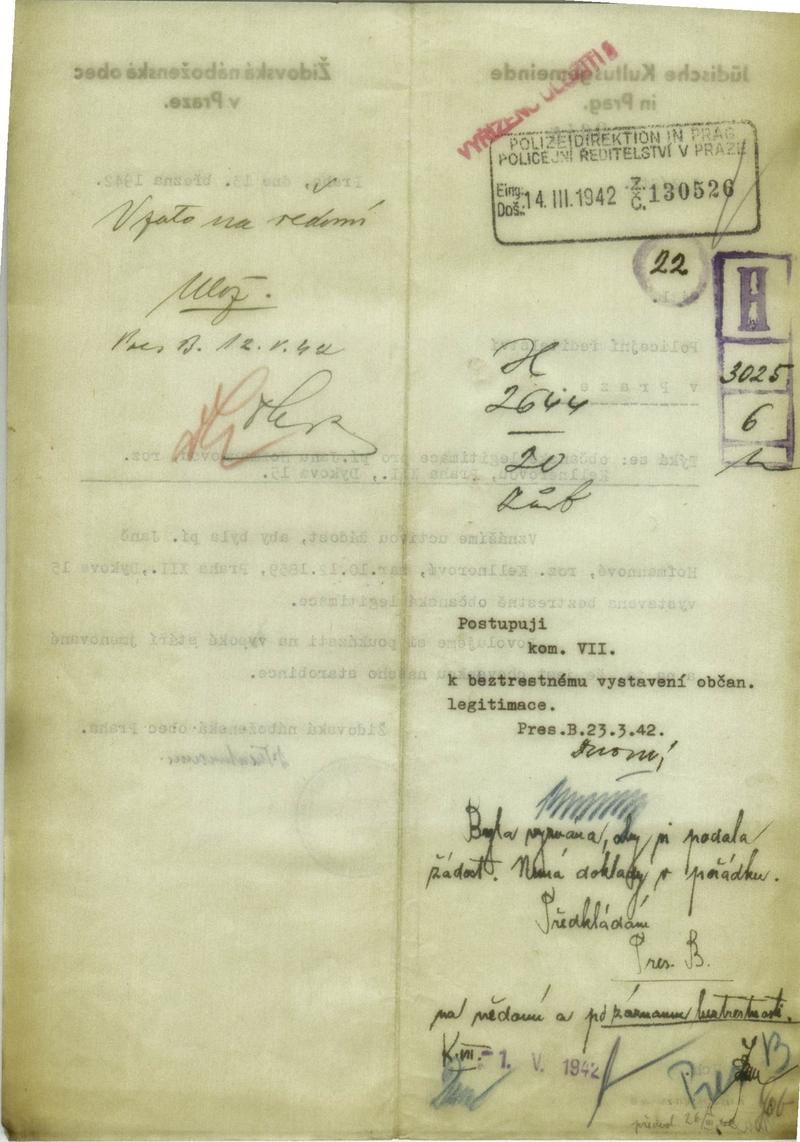 VYŘÍZENO ULOŽITI
POLIZEIDIREKTION IN PRAG
POLICEJNÍ ŘEDITELSTVÍ V PRAZE
Eing.
Doš.: 14. III. 1942 Z.
Č. 130526
22
H
3025
6
Vzato na vědomí
Ulož.
Pres. B. 12. V. 42
H
2644
20
Židovská náboženská obec
v Praze.
Jüdische Kultusgemeinde
in Prag.
Prag, dne 13. března 1942.
Policejní ředitelství
v Praze
Týká se: občan. legitimace pro roz.
Kellnerovou, Praha XII., Dykova 15.
Vznášíme uctivou žádost, aby byla pí. Janě
Hofmannové, roz. Kellnerové, nar. 10.12.1859, Praha XII., Dykova 15
vystavena beztrestně občanská legitimace.
Dovolujeme si poukázati na vysoké stáří jmenované
našeho starobince.
Židovská náboženská obec Praha.
Postupuji
kom. VII.
k beztrestnému vystavení občan.
legitimace.
Pres.B.23.3.42.
Byla vyzvána, aby si podala
žádost. Nemá doklady v pořádku.
Předkládám
Pres. B.
na vědomí a po záznamu beztrestnosti.
K. VII. - 1. V. 1942
Pres B